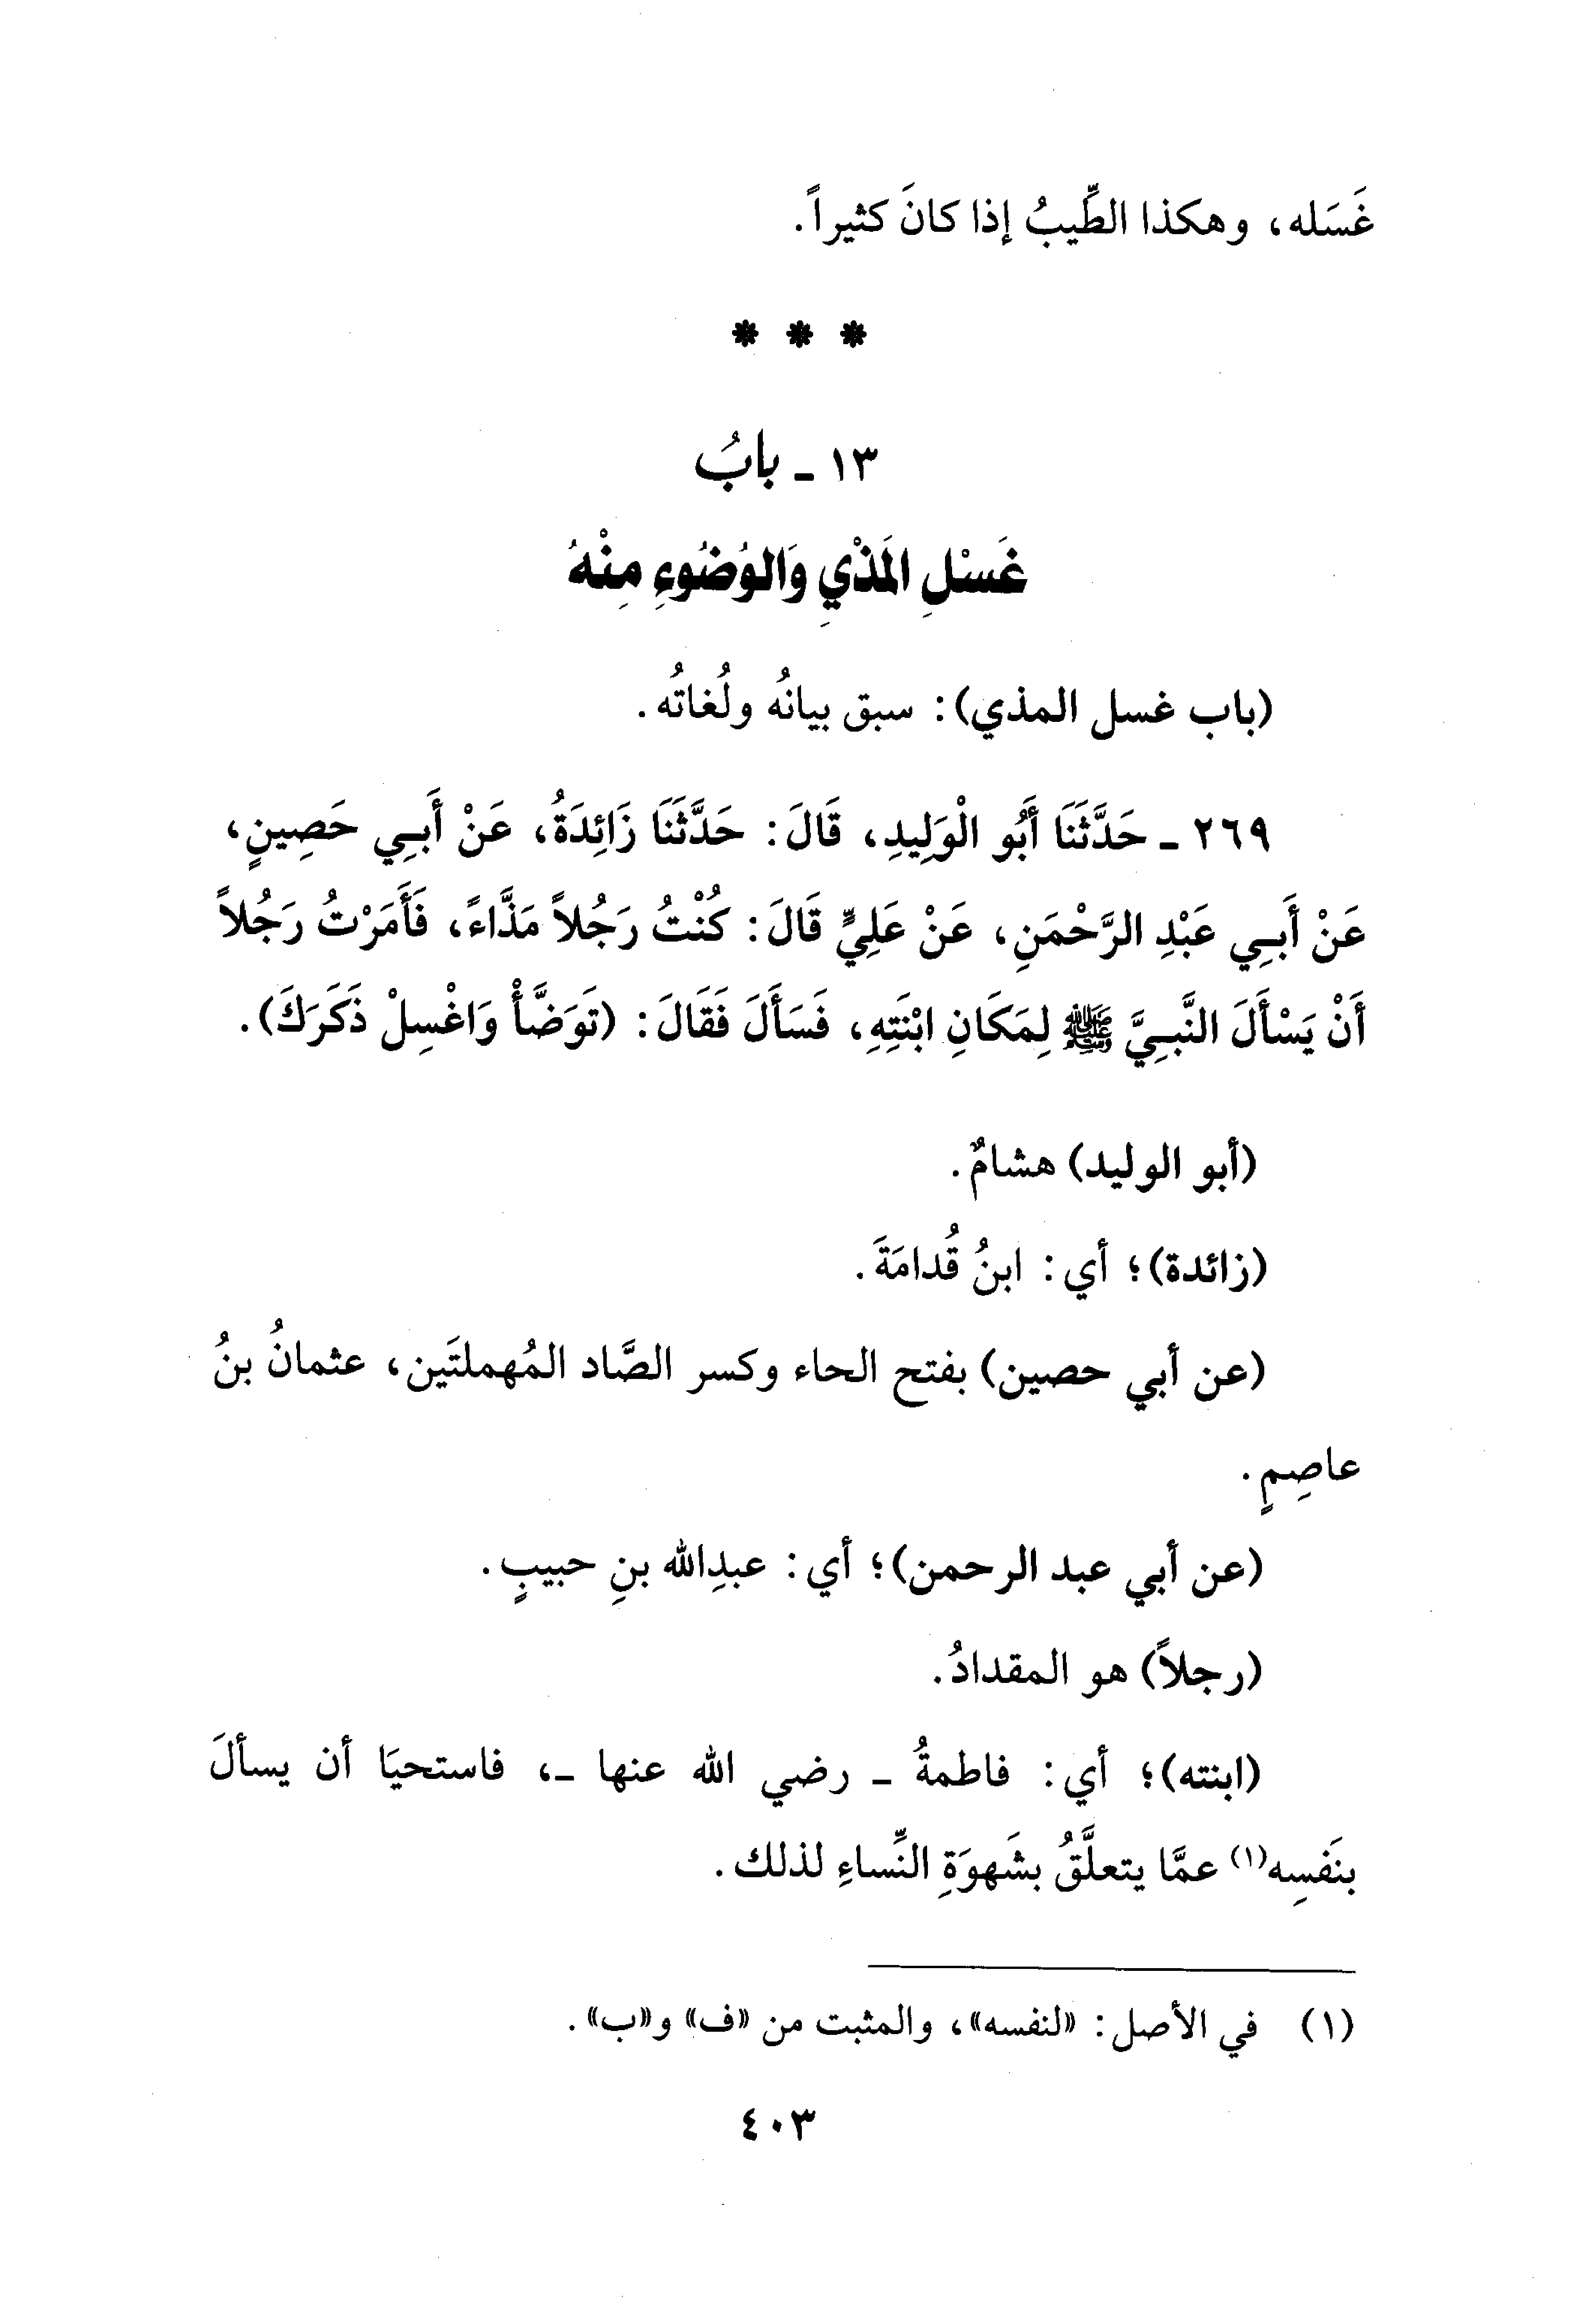 غَسَله، وهكذا الطِّيبُ إذا كانَ كثيراً.
* * *
١٣ - بابُ
غَسْلِ المَذْيِ وَالوُضُوءِ مِنْهُ
(باب غسل المذي): سبق بيانُه ولُغاتُه.
٢٦٩ - حَدَّثَنَا أَبُو الْوَلِيدِ، قَالَ: حَدَّثَنَا زَائِدَةُ، عَنْ أَبِي حَصِينٍ،
عَنْ أَبِي عَبْدِ الرَّحْمَنِ، عَنْ عَلِيٍّ قَالَ: كُنْتُ رَجُلاً مَذَّاءً، فَأَمَرْتُ رَجُلاً
أَنْ يَسْأَلَ النَّبِيَّ ﷺ لِمَكَانِ ابْنَتِهِ، فَسَأَلَ فَقَالَ: (تَوَضَّأْ وَاغْسِلْ ذَكَرَكَ).
(أبو الوليد) هشامٌ.
(زائدة)؛ أي: ابنُ قُدامَةَ.
(عن أبي حصين) بفتح الحاء وكسر الصَّاد المُهملتَين، عثمانُ بنُ
عاصِمٍ.
(عن أبي عبد الرحمن)؛ أي: عبدِالله بنِ حبيبٍ.
(رجلاً) هو المقدادُ.
(ابنته)؛ أي: فاطمةُ - رضي الله عنها -، فاستحيَا أن يسألَ
بنَفسِه(١) عمَّا يتعلَّقُ بشَهوَةِ النِّساءِ لذلك.
(١) في الأصل: «لنفسه»، والمثبت من «ف» و«ب».
٤٠٣